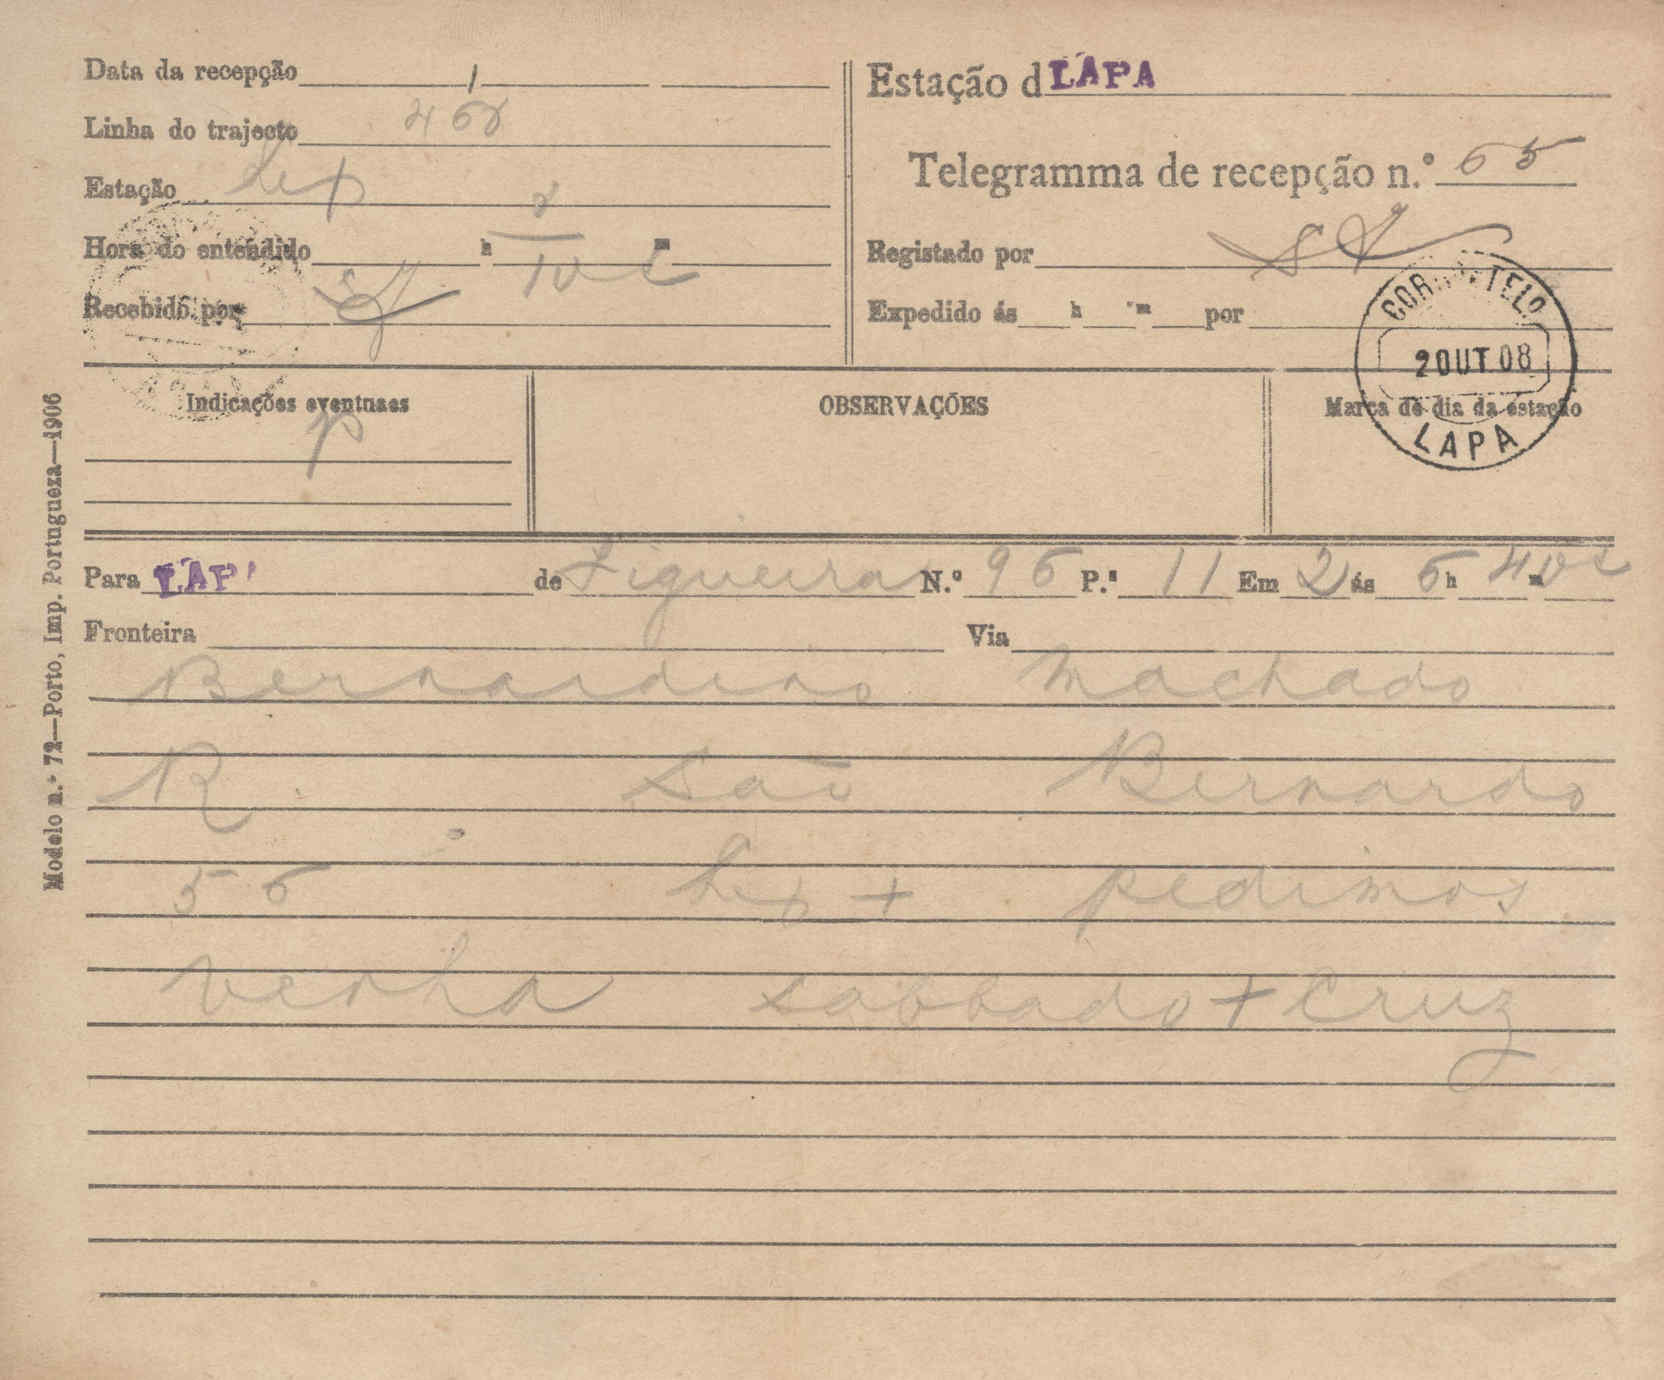 Data da recepção
Linha do trajecto 468
Estação Lxp
Hora do entendido h m
Recebido por
Estação d LAPA
Telegramma de recepção n.º 65
Registado por
Expedido ás h m por
COR TELO
2 OUT 08
LAPA
Indicações eventuaes
P
OBSERVAÇÕES
Marca de dia da estação
Para LAP de Figueira N.º 96 P.ª 11 Em 2 ás 6 h 40 m
Fronteira Via
Bernardino Machado
R São Bernardo
56 Lxp + pedimos
venha sabbado + Cruz
Modelo n.º 72—Porto, Imp. Portugueza—1906